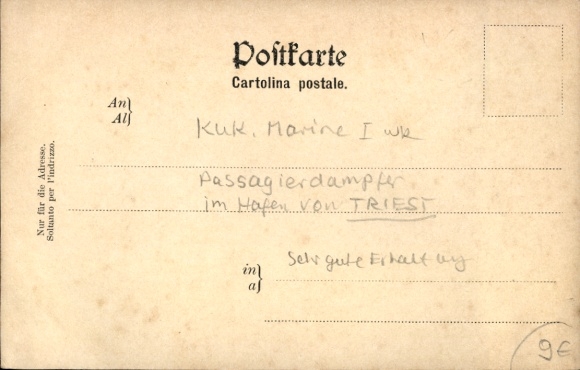 Postkarte
Cartolina postale.
An}
Al}
KuK. Marine I wk
Passagierdampfer
im Hafen von TRIEST
Nur für die Adresse.
Soltanto per l'indrizzo.
in}
a}
Sehr gute Erhaltung
9€